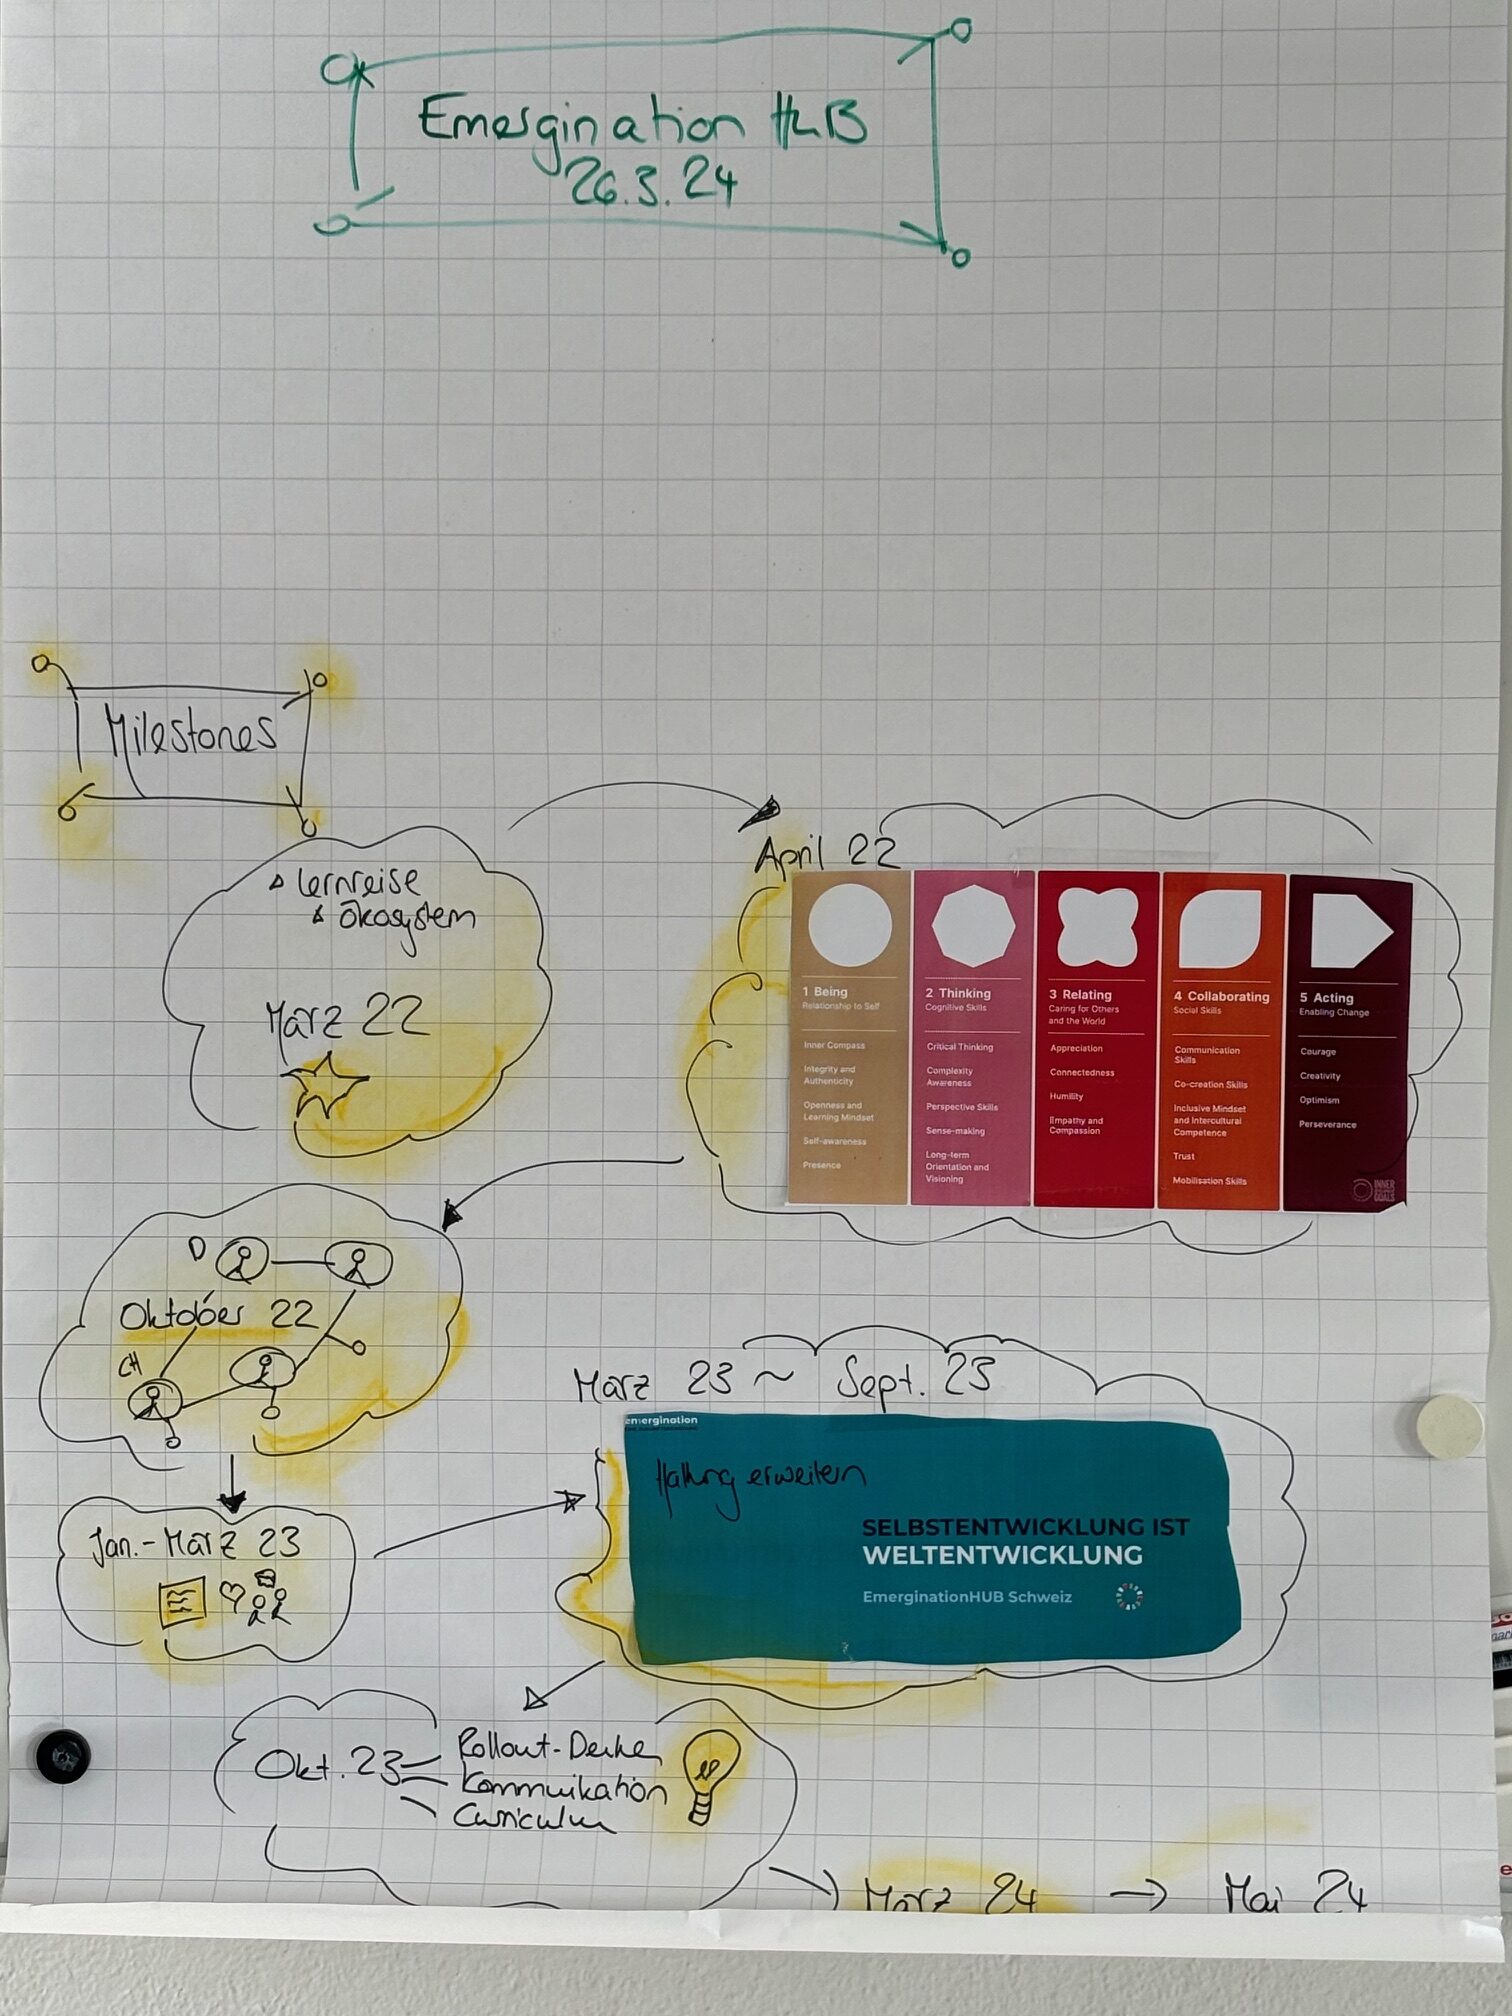 Emergination HUB
26.3.24
Milestones
Lernreise
Ökosystem
März 22
April 22
1 Being
Relationship to Self
Inner Compass
Integrity and
Authenticity
Openness and
Learning Mindset
Self-awareness
Presence
2 Thinking
Cognitive Skills
Critical Thinking
Complexity
Awareness
Perspective Skills
Sense-making
Long-term
Orientation and
Visioning
3 Relating
Caring for Others
and the World
Appreciation
Connectedness
Humility
Empathy and
Compassion
4 Collaborating
Social Skills
Communication
Skills
Co-creation Skills
Inclusive Mindset
and Intercultural
Competence
Trust
Mobilisation Skills
5 Acting
Enabling Change
Courage
Creativity
Optimism
Perseverance
INNER
DEVELOPMENT
GOALS
D
Oktober 22
CH
Jan.-März 23
März 23 ~ Sept. 23
emergination
Haltung erweitern
SELBSTENTWICKLUNG IST
WELTENTWICKLUNG
EmerginationHUB Schweiz
Okt. 23
Rollout-Denke
Kommunikation
Curriculum
März 24 → Mai 24